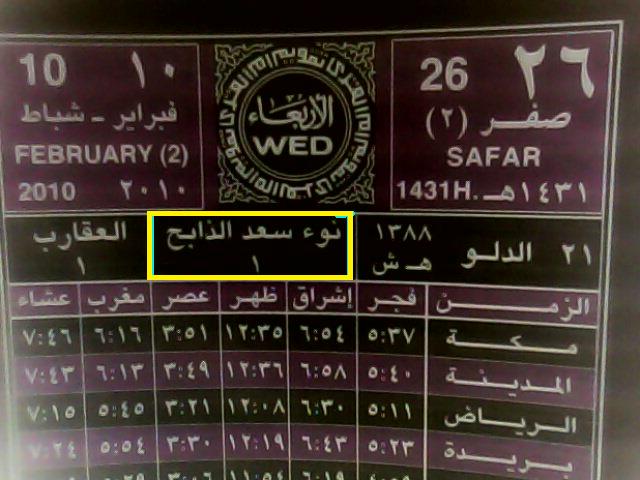 ٢٦ 26
صفر (٢)
SAFAR
1431H. ١٤٣١هـ
الأربعاء
WED
10 ١٠
فبراير - شباط
FEBRUARY (2)
2010 ٢٠١٠
٢١ الدلو ١٣٨٨ هـ ش
نوء سعد الذابح
١
العقارب
١
الزمن فجر إشراق ظهر عصر مغرب عشاء
مكة ٥:٣٧ ٦:٥٤ ١٢:٣٥ ٣:٥١ ٦:١٦ ٧:٤٦
المدينة ٥:٤٠ ٦:٥٨ ١٢:٣٦ ٣:٤٩ ٦:١٣ ٧:٤٣
الرياض ٥:١١ ٦:٣٠ ١٢:٠٨ ٣:٢١ ٥:٤٥ ٧:١٥
بريدة ٥:٢٣ ٦:٤٣ ١٢:١٩ ٣:٣٠ ٥:٥٤ ٧:٢٤